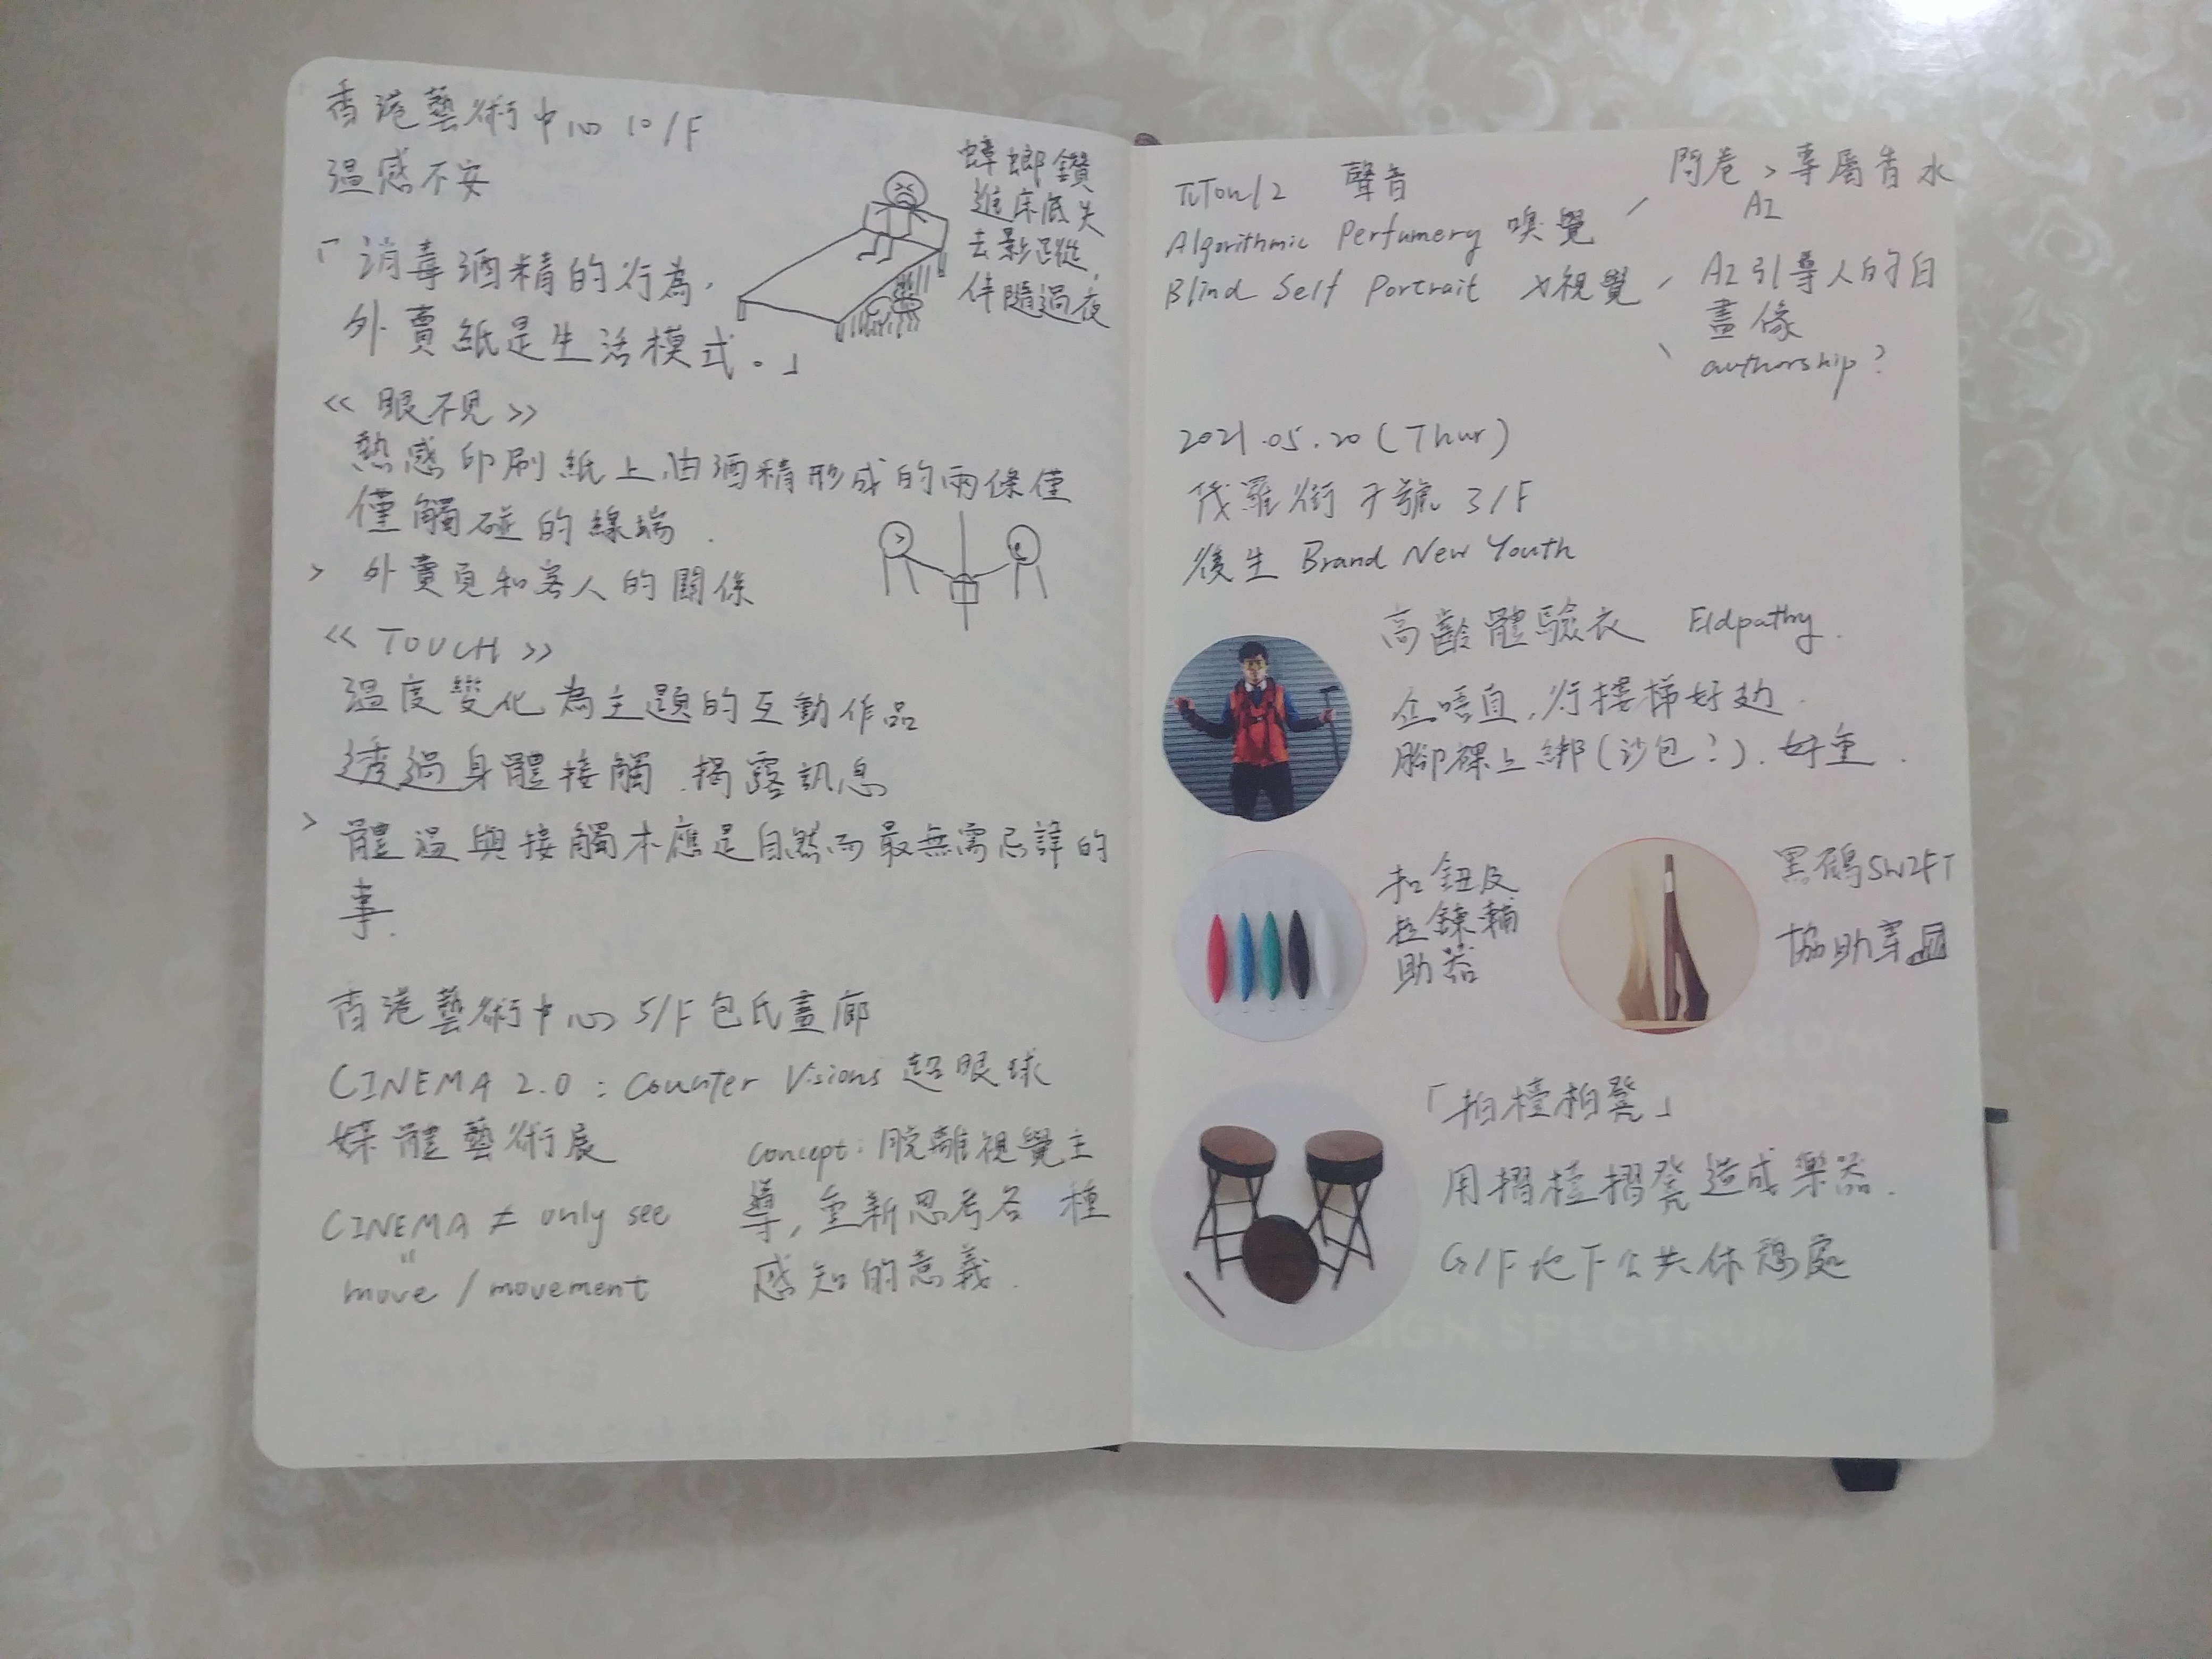 香港藝術中心 10/F
溫感不安
「消毒酒精的行為，
外賣紙是生活模式。」
蟑螂鑽
進床底失
去影蹤，
伴隨過夜
《眼不見》
熱感印刷紙上由酒精形成的兩條僅
僅觸碰的線端.
> 外賣員和客人的關係
《TOUCH》
溫度變化為主題的互動作品
透過身體接觸，揭露訊息
> 體溫與接觸本應是自然而最無需忌諱的
事.
香港藝術中心 5/F 包氏畫廊
CINEMA 2.0 : Counter Visions 超眼球
媒體藝術展
CINEMA ≠ only see
"
move / movement
concept: 脫離視覺主
導，重新思考各種
感知的意義.
聲音
Algorithmic Perfumery 嗅覺
Blind Self Portrait x視覺
問卷 > 專屬香水
AI
AI引導人的自
畫像
authorship?
2021.05.20 (Thur)
茂羅街7號 3/F
後生 Brand New Youth
高齡體驗衣 Eldpathy.
企唔直，行樓梯好攰.
腳裸上綁(沙包?)，好重.
扣鈕及
拉鍊輔
助器
SWIFT
協助穿
「拍檯拍凳」
用摺檯摺凳造成樂器.
G/F 地下公共休憩處